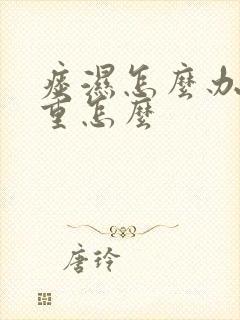 痰濕怎麼办
重怎麼
唐玲